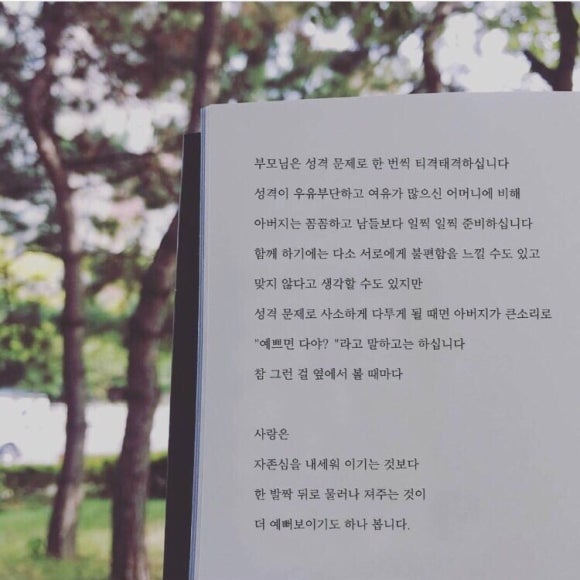 부모님은 성격 문제로 한 번씩 티격태격하십니다
성격이 우유부단하고 여유가 많으신 어머니에 비해
아버지는 꼼꼼하고 남들보다 일찍 일찍 준비하십니다
함께 하기에는 다소 서로에게 불편함을 느낄 수도 있고
맞지 않다고 생각할 수도 있지만
성격 문제로 사소하게 다투게 될 때면 아버지가 큰소리로
"예쁘면 다야? "라고 말하고는 하십니다
참 그런 걸 옆에서 볼 때마다
사랑은
자존심을 내세워 이기는 것보다
한 발짝 뒤로 물러나 져주는 것이
더 예뻐보이기도 하나 봅니다.